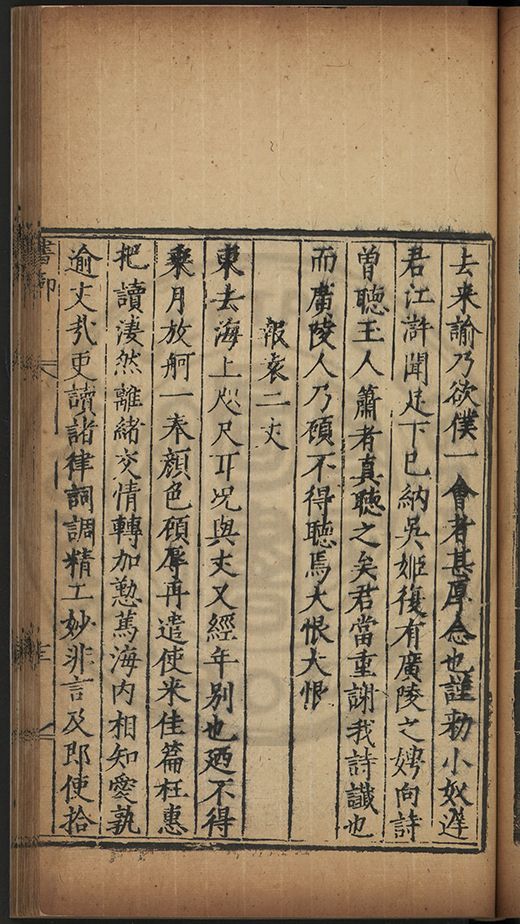 去来諭乃欲僕一會者甚厚念也謹勑小奴遲
君江滸聞足下已納吳姬復有廣陵之娉向詩
曽聽玉人簫者真聽之矣君當重謝我詩讖也
而廣陵人乃碩不得聽焉大恨大恨
報袁二丈
東去海上咫尺耳况與丈又經年別也廼不得
乗月放舸一奉顔色碩辱再遣使来佳篇枉惠
把讀淒然離緒交情轉加懃萬海内相知愛孰
逾丈㢤更讀諸律詞調精工妙非言及即使拾